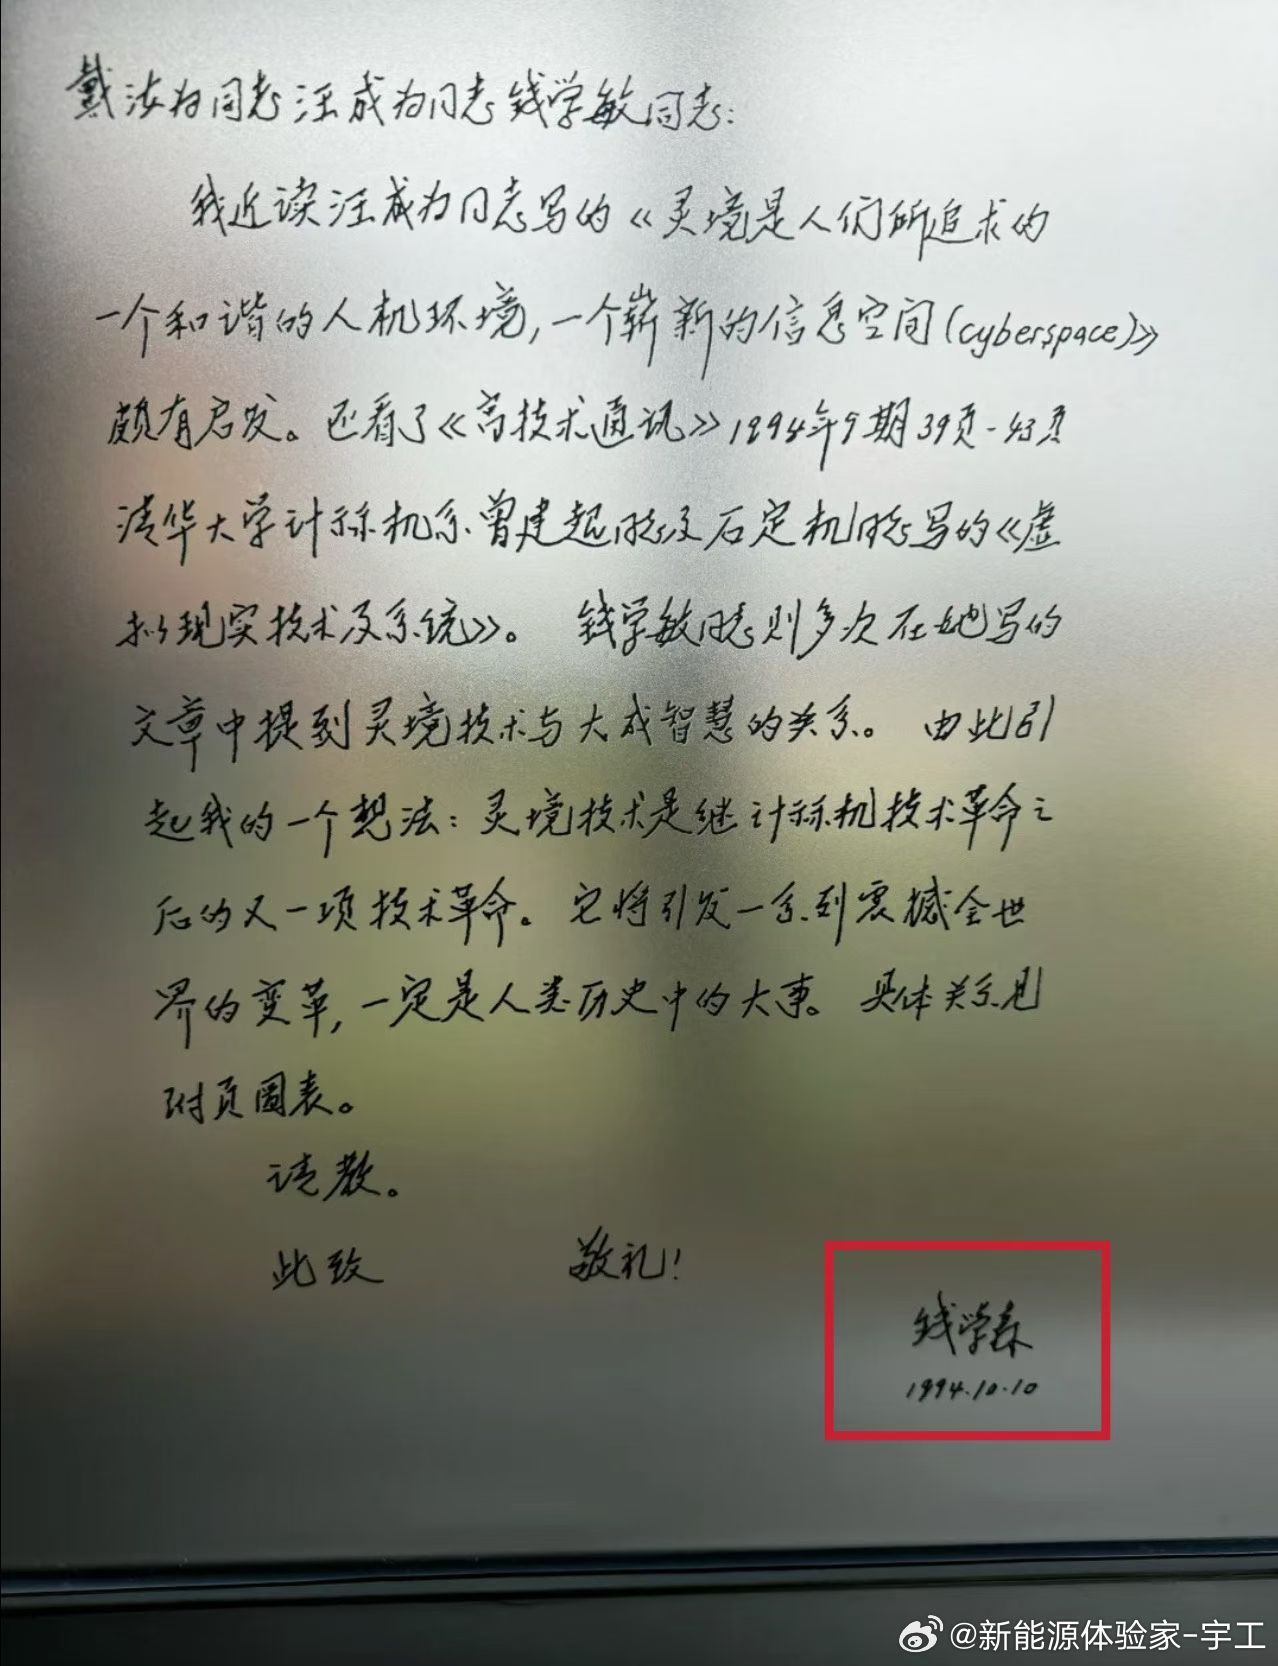 戴汝为同志汪成为同志钱学敏同志：
我近读汪成为同志写的《灵境是人们所追求的
一个和谐的人机环境，一个崭新的信息空间(cyberspace)》
颇有启发。还看了《高技术通讯》1994年9期39页-43页
清华大学计祘机系曾建超同志及石定机同志写的《虚
拟现实技术及系统》。 钱学敏同志则多次在她写的
文章中提到灵境技术与大成智慧的关系。 由此引
起我的一个想法：灵境技术是继计祘机技术革命之
后的又一项技术革命。它将引发一系列震撼全世
界的变革，一定是人类历史中的大事。 具体关系见
附页图表。
请教。
此致 敬礼！
钱学森
1994.10.10
@新能源体验家-宇工